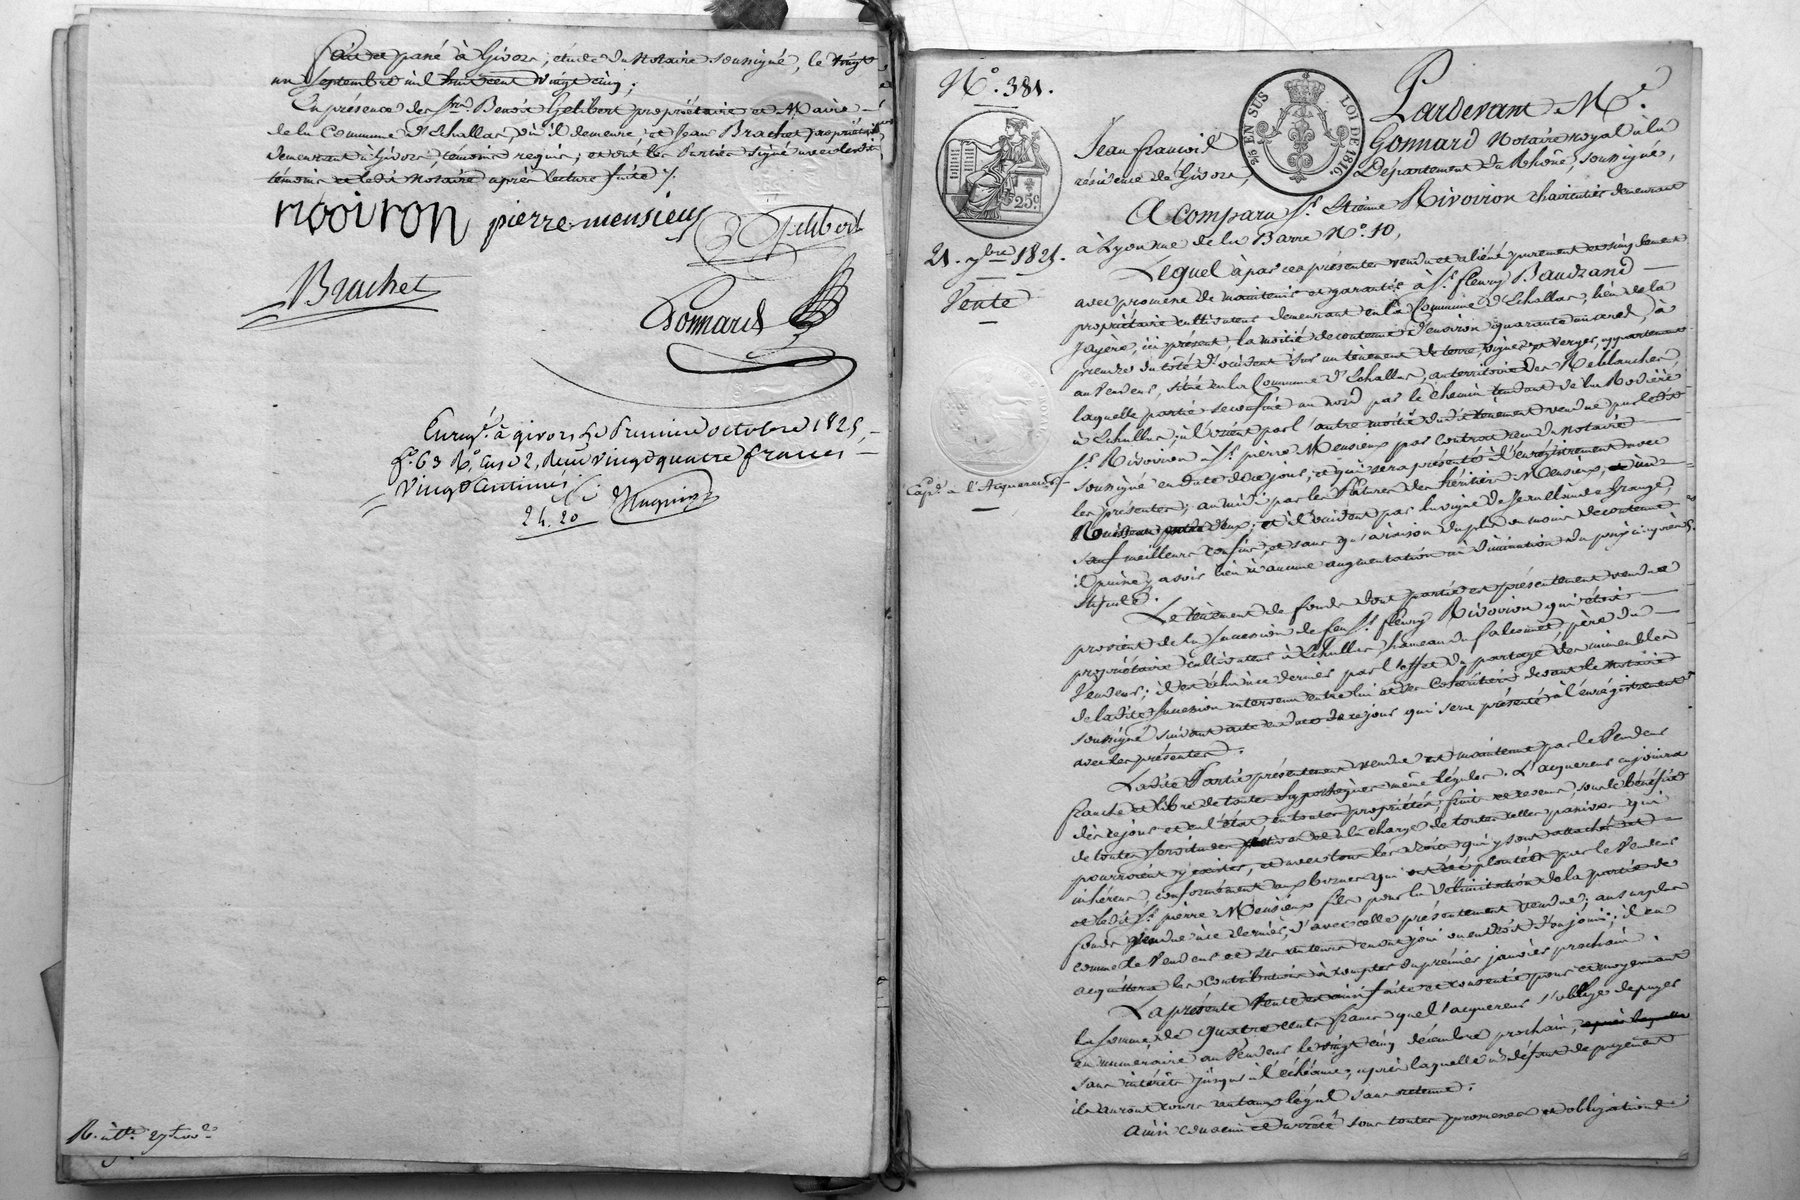 fait et passé à Givors, étude du Notaire soussigné, le vingt
un septembre mil huit cent vingt cinq;
En présence des Srs. Benoit Gelibert propriétaire et Maire
de la Commune d'Échallas, où il demeure et Jean Brachet propriétaire
demeurant à Givors, témoins requis; et ont les Parties signé avec lesdits
témoins et ledit Notaire après lecture faite /.
rivoiron pierre mensieux Gelibert
Brachet
Gonnard
Enreg. à givors le Premier octobre 1825,
fo. 63 Ro. Case 2, Reçu vingt quatre francs
vingt centimes
24. 20
No. 381.
21. 7bre 1825.
Vente
Expé. à l'Acquereur
25 c
EN SUS
LOI DE 1816
Pardevant Me.
Jean françois Gonnard Notaire royal à la
résidence de Givors, Département du Rhône, soussigné,
A comparu Sr. Etienne Rivoiron charcutier demeurant
à Lyon rue de la Barre No. 10,
Lequel à par ces présentes vendu et aliéné purement et simplement
avec promesse de maintenir et garantir à Sr. fleury Baudrand
propriétaire cultivateur demeurant en la Commune d'Échallas, lieu de la
Jayère, ici présent, la moitié de contenue d'environ quarante un ares, à
prendre du côté d'occident sur un tènement de terre, vigne et verger, appartenant
au Vendeur, situé en la Commune d'Échallas, au territoire des
laquelle partie se confine au nord par le chemin tendant de la Rodière
à Échallas; à l'orient par l'autre moitié dudit tènement vendue par ledit
Sr. Rivoiron à Sr. pierre Mensieux par contrat reçu du Notaire
soussigné en date de ce jour, et qui sera présenté à l'enregistrement avec
les présentes; au midi par les pâtures des héritiers Mensieux, un
Ruisseau entre deux; et à l'occident par la vigne de Jean Claude Grange,
sauf meilleurs confins, et sans qu'à raison du plus ou moins de contenue
il puisse y avoir lieu à aucune augmentation ni diminution du prix ci-après
stipulé.
Le tènement de fonds dont partie est présentement vendue
provient de la succession de feu Sr. fleury Rivoiron qui étoit
propriétaire cultivateur à Échallas, hameau du falconnet, père du
Vendeur; il est échu à ce dernier par l'effet du partage des immeubles
de ladite succession intervenu entre lui et ses Cohéritiers devant le Notaire
soussigné suivant acte en date de ce jour qui sera présenté à l'enregistrement
avec les présentes.
Ladite Partie présentement vendue est maintenue par le Vendeur
franche et libre de toutes hypothèques même légales. L'acquereur en jouira
dès ce jour et en l'état en toute propriété, fruit et revenu, sous le bénéfice
de toutes servitudes actives et à la charge de toutes celles passives qui
pourroient y exister, et avec tous les droits qui y sont attachés et
inhérens, conformément aux bornes qui ont été plantées par le Vendeur
et ledit Sr. pierre Mensieux fils pour la délimitation de la partie de
fonds vendue à ce dernier, d'avec celle présentement vendue; au surplus
comme le Vendeur et ses auteurs en ont joui ou en droit d'en jouir; il en
acquittera les contributions à compter du premier janvier prochain.
La présente Vente est ainsi faite et consentie pour et moyennant
la somme de quatre cents francs que l'acquereur s'oblige de payer
en numéraire au Vendeur le vingt cinq décembre prochain,
sans intérêts jusqu'à l'échéance, après laquelle à défaut de payement
ils auront cours au taux légal sans retenue.
Ainsi convenu et arrêté sous toutes promesses et obligations.